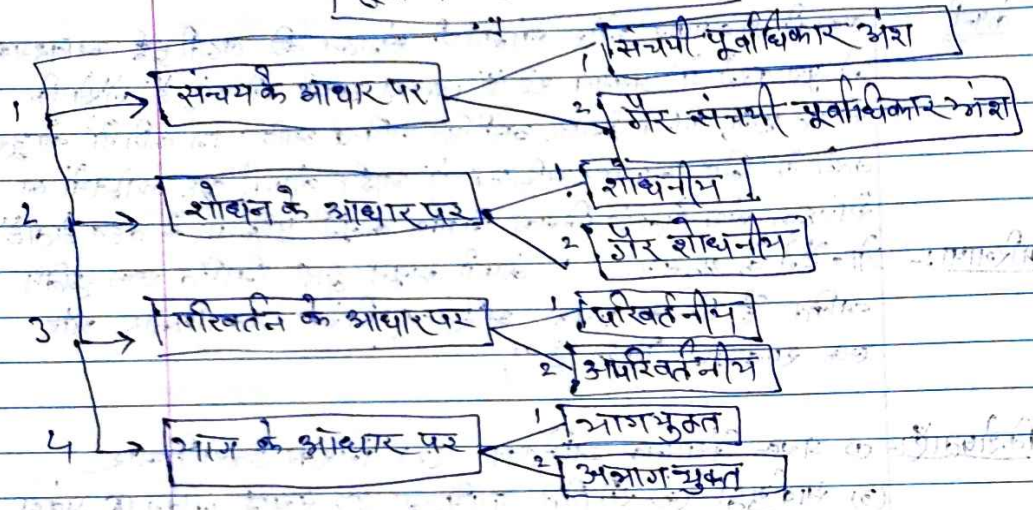 1 संचय के आधार पर
1 संचयी पूर्वाधिकार अंश
2 गैर संचयी पूर्वाधिकार अंश
2 शोधन के आधार पर
1 शोधनीय
2 गैर शोधनीय
3 परिवर्तन के आधार पर
1 परिवर्तनीय
2 अपरिवर्तनीय
4 भाग के आधार पर
1 भागयुक्त
2 अभागयुक्त